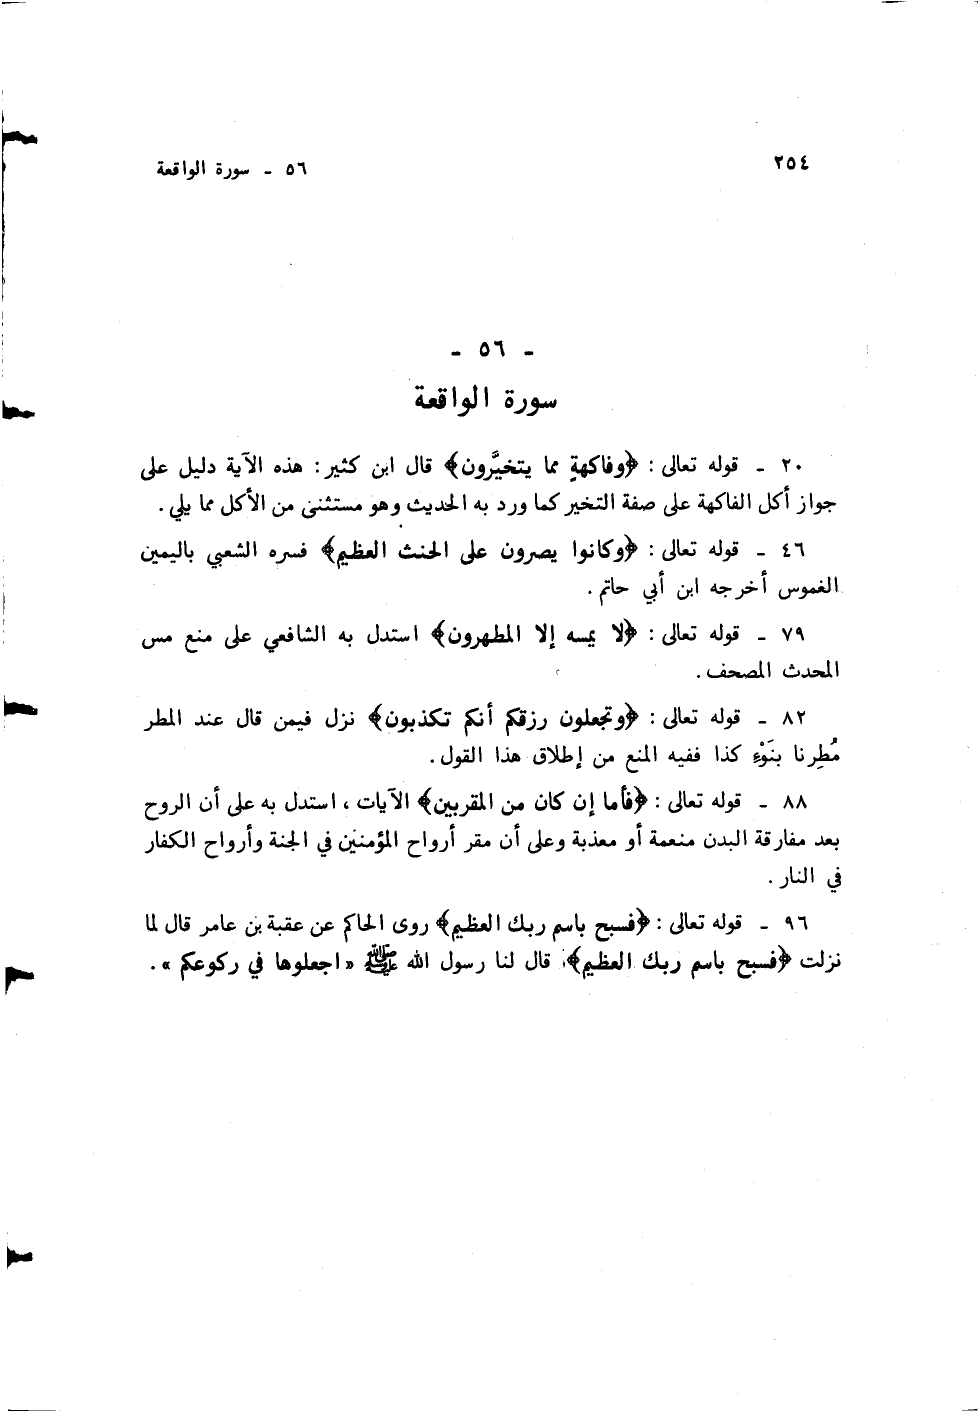 ٢٥٤
٥٦ - سورة الواقعة
- ٥٦ -
سورة الواقعة
٢٠ - قوله تعالى : ﴿وفاكهةٍ مما يتخيَّرون﴾ قال ابن كثير : هذه الآية دليل على
جواز أكل الفاكهة على صفة التخير كما ورد به الحديث وهو مستثنى من الأكل مما يلي .
٤٦ - قوله تعالى : ﴿وكانوا يصرون على الحنث العظيم﴾ فسره الشعبي باليمين
الغموس أخرجه ابن أبي حاتم .
٧٩ - قوله تعالى : ﴿لا يمسه إلا المطهرون﴾ استدل به الشافعي على منع مس
المحدث المصحف .
٨٢ - قوله تعالى : ﴿وتجعلون رزقكم أنكم تكذبون﴾ نزل فيمن قال عند المطر
مُطِرنا بنَوْءِ كذا ففيه المنع من إطلاق هذا القول .
٨٨ - قوله تعالى : ﴿فأما إن كان من المقربين﴾ الآيات ، استدل به على أن الروح
بعد مفارقة البدن منعمة أو معذبة وعلى أن مقر أرواح المؤمنين في الجنة وأرواح الكفار
في النار .
٩٦ - قوله تعالى : ﴿فسبح باسم ربك العظيم﴾ روى الحاكم عن عقبة بن عامر قال لما
نزلت ﴿فسبح باسم ربك العظيم﴾ قال لنا رسول الله ﷺ « اجعلوها في ركوعكم » .